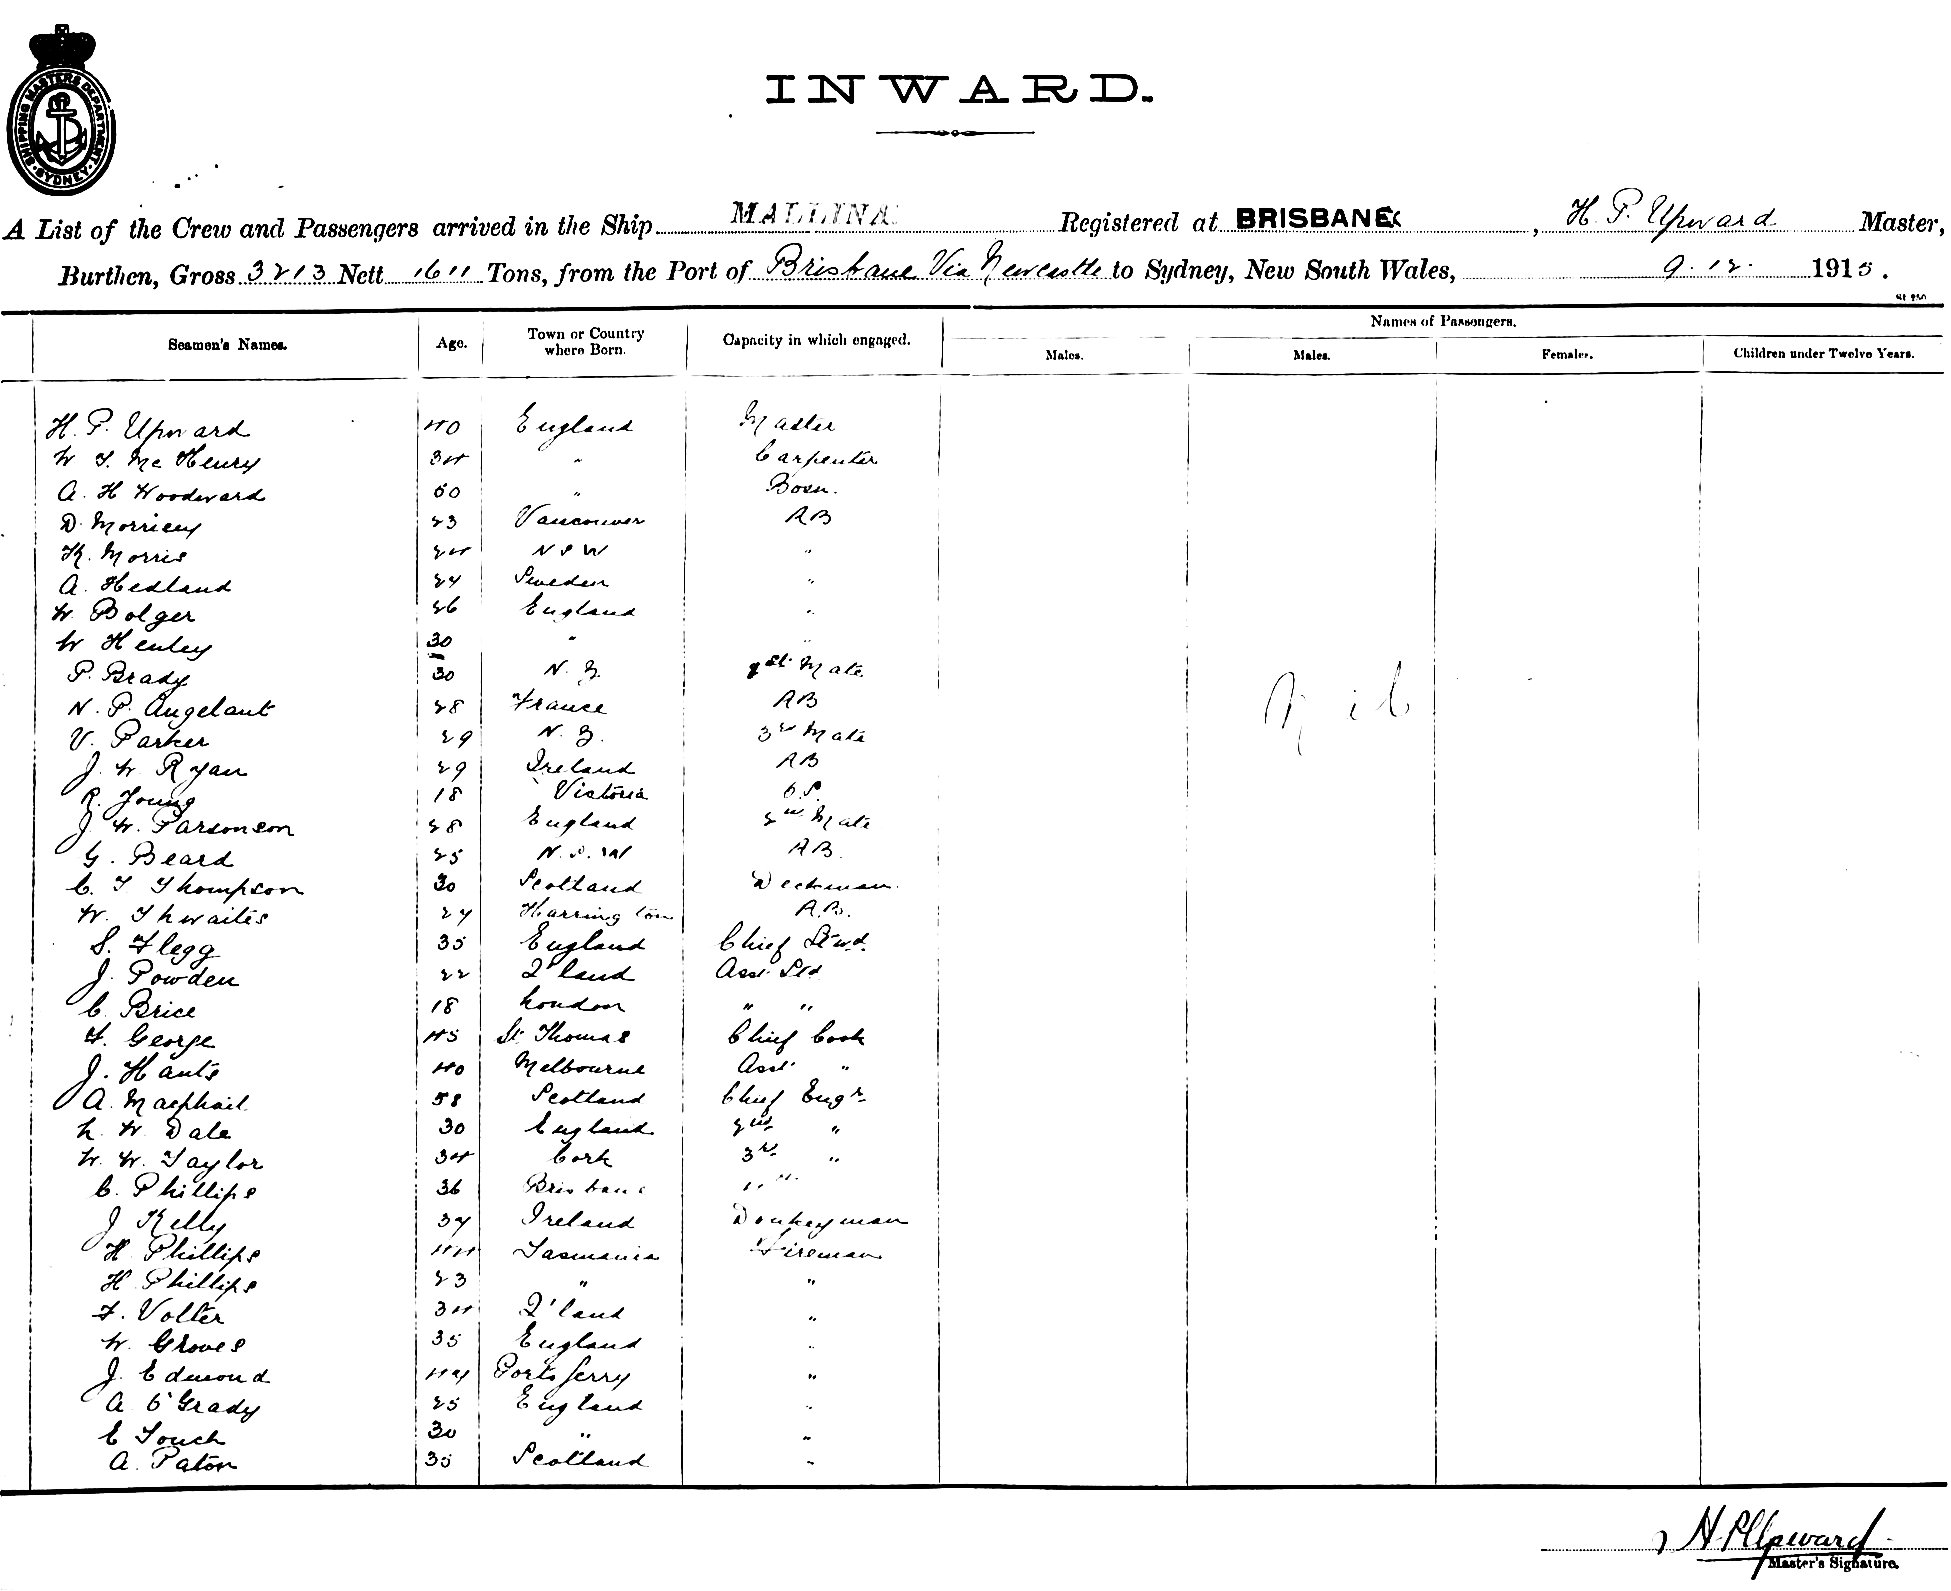 SHIPPING MASTERS DEPARTMENT SYDNEY
INWARD.
A List of the Crew and Passengers arrived in the Ship MALLINA Registered at BRISBANE, H. P. Upward Master,
Burthen, Gross 3213 Nett 1611 Tons, from the Port of Brisbane Via Newcastle to Sydney, New South Wales, 9. 12. 1915.
Seamen's Names. Age. Town or Country where Born. Capacity in which engaged. Names of Passengers.
Males. Males. Females. Children under Twelve Years.
H. P. Upward 40 England Master
W T. Mc Henry 34 " Carpenter
A. H Woodward 50 " Bosn.
D. 23 Vancouver AB
K. Morris 24 N S W "
A. Hedland 24 Sweden "
W. Bolger 26 England "
W Henley 30 " "
P. Brady 30 N. Z. 1st Mate
N. P. Angelant 28 France AB
V. Parker 29 N. Z. 3rd Mate
J. W Ryan 29 Ireland AB
R. Young 18 Victoria O.S.
J W. Parsonson 28 England 2nd Mate
G. Beard 25 N. S. W AB.
C. T Thompson 30 Scotland Deckman.
W. Thwaites 24 Harrington A.B.
S. Flegg 35 England Chief Stwd.
J. Powden 22 Q'land Asst Std
C. Brice 18 London " "
F. George 45 St Thomas Chief Cook
J. Hants 40 Melbourne Asst "
A. Macphail 58 Scotland Chief Engr
L. W Dale 30 England 2nd "
W. W. Taylor 34 Cork 3rd "
C. Phillips 36 Brisbane " "
J Kelly 34 Ireland Donkeyman
H Phillips 44 Tasmania Fireman
H Phillips 23 " "
F. Volter 34 Q'land "
W. Groves 35 England "
J. Edmond 44 Portsferry "
A O'Grady 25 England "
E Touch 30 " "
A. Paton 35 Scotland "
Nil
H. P. Upward
Master's Signature.